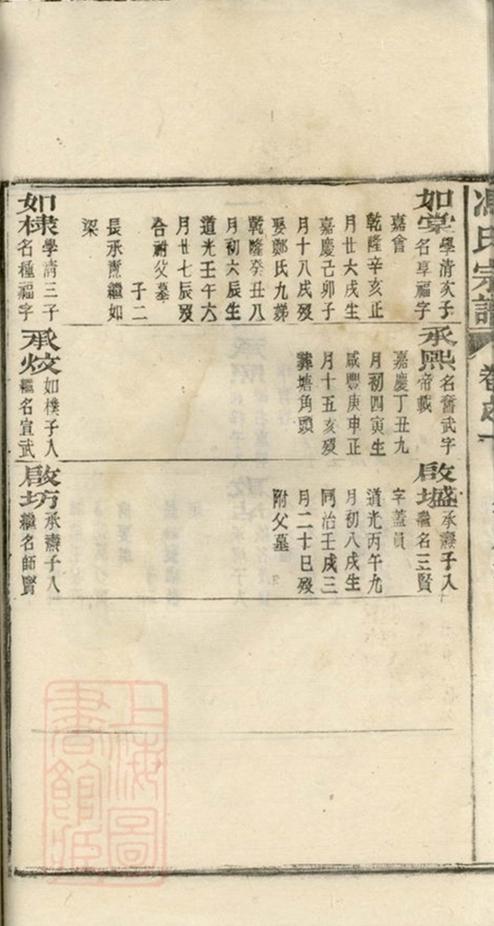 馮氏宗譜
卷之一
如棠
學清次子
名享福字
嘉會
乾隆辛亥正
月廿六戌生
嘉慶己卯子
月十八戌歿
娶鄭氏九娣
乾隆癸丑八
月初六辰生
道光壬午六
月廿七辰歿
合祔父墓
子二
長承燾繼如
梁
如棣
學清三子
名種福字
承熙
名奮武字
帝載
嘉慶丁丑九
月初四寅生
咸豐庚申正
月十五亥歿
葬塘角頭
承烄
如樸子入
繼名宣武
啟堪
承燾子入
繼名三賢
字蓋員
道光丙午九
月初八戌生
同治壬戌三
月二十巳歿
附父墓
啟坊
承燾子入
繼名師賢
上海圖
書館藏